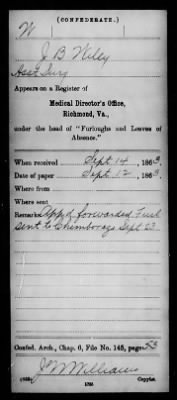 (CONFEDERATE.)
W
J B Wiley
Asst Surg
Appears on a Register of
Medical Director's Office,
Richmond, Va.,
under the head of "Furloughs and Leaves of
Absence."
When received Sept 14, 1863.
Date of paper Sept 12, 1863.
Where from
Where sent
Remarks: App'd forwarded Furl
sent to Chimborazo Sept 23
Confed. Arch., Chap. 6, File No. 145, page 53
J W Williams
Copyist.